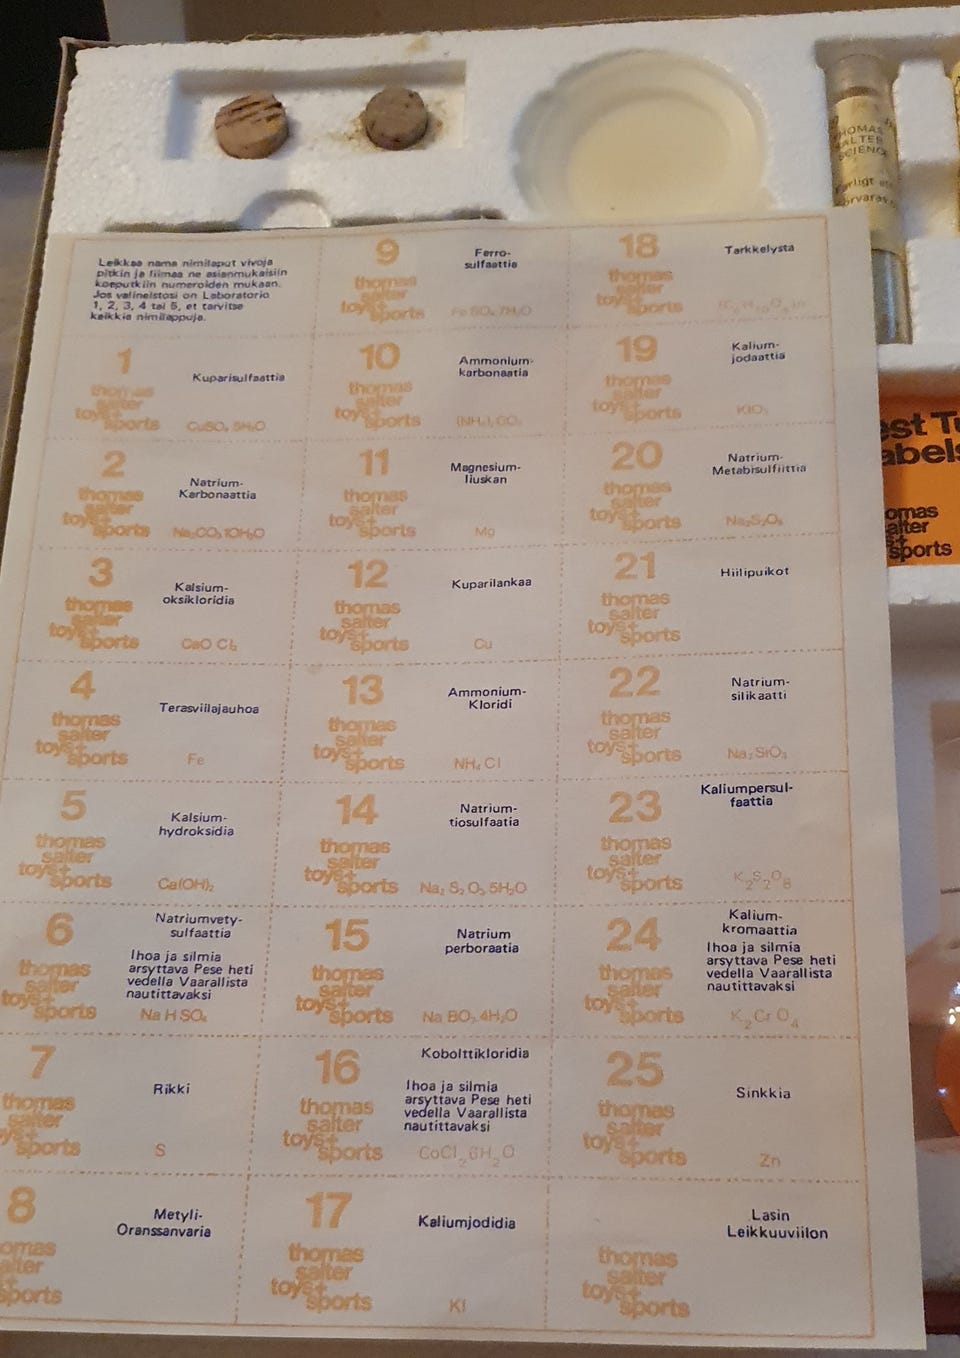 THOMAS
SALTER
SCIENCE
Farligt
Leikkaa nama nimilaput vivoja
pitkin ja liimaa ne asianmukaisiin
koeputkiin numeroiden mukaan.
Jos valineistosi on Laboratorio
1, 2, 3, 4 tai 5, et tarvitse
kaikkia nimilappuja.
1
thomas
salter
toys+
sports
Kuparisulfaattia
CuSO₄ 5H₂O
2
thomas
salter
toys+
sports
Natrium-
Karbonaattia
Na₂CO₃ 10H₂O
3
thomas
salter
toys+
sports
Kalsium-
oksikloridia
CaO Cl₂
4
thomas
salter
toys+
sports
Terasviilajauhoa
Fe
5
thomas
salter
toys+
sports
Kalsium-
hydroksidia
Ca(OH)₂
6
thomas
salter
toys+
sports
Natriumvety-
sulfaattia
Ihoa ja silmia
arsyttava Pese heti
vedella Vaarallista
nautittavaksi
Na H SO₄
7
thomas
salter
toys+
sports
Rikki
S
8
thomas
salter
sports
Metyli-
Oranssanvaria
9
thomas
salter
toys+
sports
Ferro-
sulfaattia
Fe SO₄ 7H₂O
10
thomas
salter
toys+
sports
Ammonium-
karbonaatia
(NH₄)₂ CO₃
11
thomas
salter
toys+
sports
Magnesium-
liuskan
Mg
12
thomas
salter
toys+
sports
Kuparilankaa
Cu
13
thomas
salter
toys+
sports
Ammonium-
Kloridi
NH₄ Cl
14
thomas
salter
toys+
sports
Natrium-
tiosulfaatia
Na₂ S₂ O₃ 5H₂O
15
thomas
salter
toys+
sports
Natrium
perboraatia
Na BO₃ 4H₂O
16
thomas
salter
toys+
sports
Kobolttikloridia
Ihoa ja silmia
arsyttava Pese heti
vedella Vaarallista
nautittavaksi
CoCl₂ 6H₂O
17
thomas
salter
toys+
sports
Kaliumjodidia
KI
18
thomas
salter
toys+
sports
Tarkkelysta
(C₆H₁₀O₅)n
19
thomas
salter
toys+
sports
Kalium-
jodaattia
KIO₃
20
thomas
salter
toys+
sports
Natrium-
Metabisulfiittia
Na₂S₂O₅
21
thomas
salter
toys+
sports
Hiilipuikot
22
thomas
salter
toys+
sports
Natrium-
silikaatti
Na₂ SiO₃
23
thomas
salter
toys+
sports
Kaliumpersul-
faattia
K₂S₂O₈
24
thomas
salter
toys+
sports
Kalium-
kromaattia
Ihoa ja silmia
arsyttava Pese heti
vedella Vaarallista
nautittavaksi
K₂Cr O₄
25
thomas
salter
toys+
sports
Sinkkia
Zn
thomas
salter
toys+
sports
Lasin
Leikkuuviilon
est Tu
abels
omas
alter
s+
sports